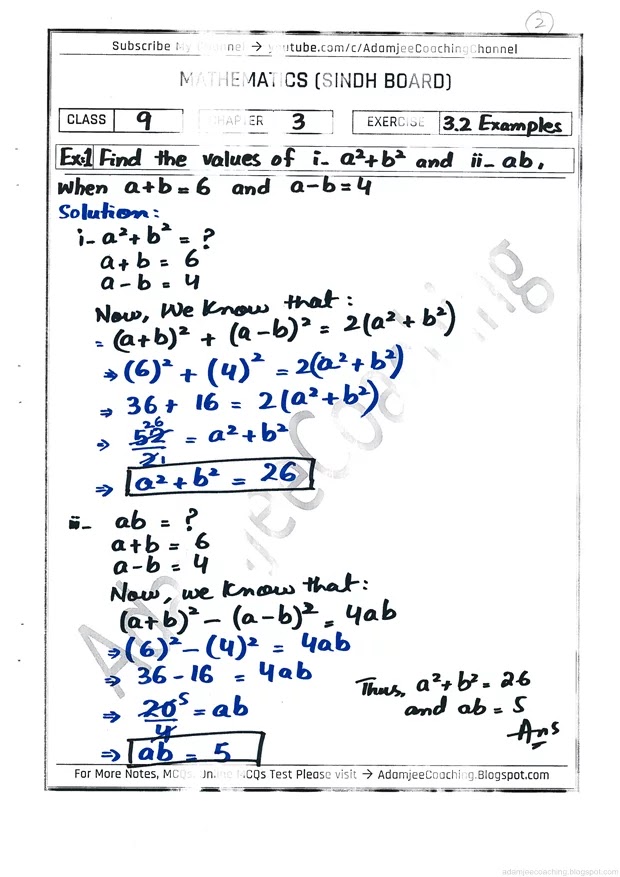 2
Subscribe My Channel → youtube.com/c/AdamjeeCoachingChannel
MATHEMATICS (SINDH BOARD)
CLASS 9 CHAPTER 3 EXERCISE 3.2 Examples
Ex:1 Find the values of i- a²+b² and ii- ab,
when a+b=6 and a-b=4
Solution:
i- a²+b² = ?
a+b = 6
a-b = 4
Now, We know that:
= (a+b)² + (a-b)² = 2(a²+b²)
⇒ (6)² + (4)² = 2(a²+b²)
⇒ 36 + 16 = 2(a²+b²)
26
⇒ 52/2 = a²+b²
1
⇒ a²+b² = 26
ii- ab = ?
a+b = 6
a-b = 4
Now, we know that:
(a+b)² - (a-b)² = 4ab
⇒ (6)² - (4)² = 4ab
⇒ 36 - 16 = 4ab
⇒ 20/4 5 = ab
⇒ ab = 5
Thus, a²+b² = 26
and ab = 5
Ans
For More Notes, MCQs, Online MCQs Test Please visit → AdamjeeCoaching.Blogspot.com
AdamjeeCoaching
adamjeecoaching.blogspot.com